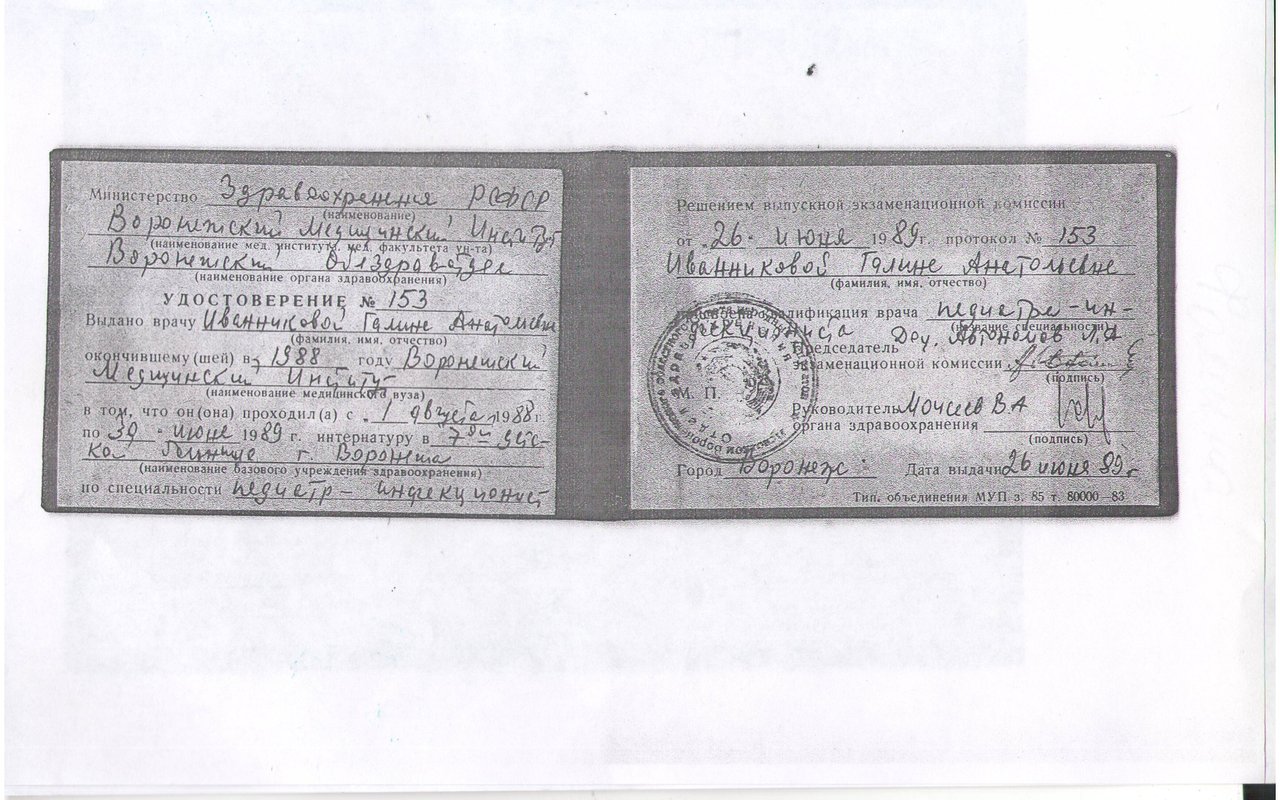 Министерство Здравоохранения РСФСР
(наименование)
Воронежский Медицинский Институт
(наименование мед. института, мед. факультета ун-та)
Воронежский Облздравотдел
(наименование органа здравоохранения)
УДОСТОВЕРЕНИЕ № 153
Выдано врачу Иванниковой Галине Анатольевне
(фамилия, имя, отчество)
окончившему (шей) в 1988 году Воронежский
Медицинский Институт
(наименование медицинского вуза)
в том, что он(она) проходил(а) с 1 августа 1988 г.
по 30 июне 1989 г. интернатуру в 7ой детс-
кой больнице г. Воронежа
(наименование базового учреждения здравоохранения)
по специальности педиатр – инфекционист
Решением выпускной экзаменационной комиссии
от 26 июня 1989 г. протокол № 153
Иванниковой Галине Анатольевне
(фамилия, имя, отчество)
присвоена квалификация врача педиатра – ин-
(название специальности)
фекциониста Доц. Автономов Л.А
Председатель
экзаменационной комиссии
(подпись)
М. П.
Руководитель Моисеев В.А
органа здравоохранения
(подпись)
Город Воронеж Дата выдачи 26 июня 89 г
Тип. объединения МУП з. 85 т. 80000—83